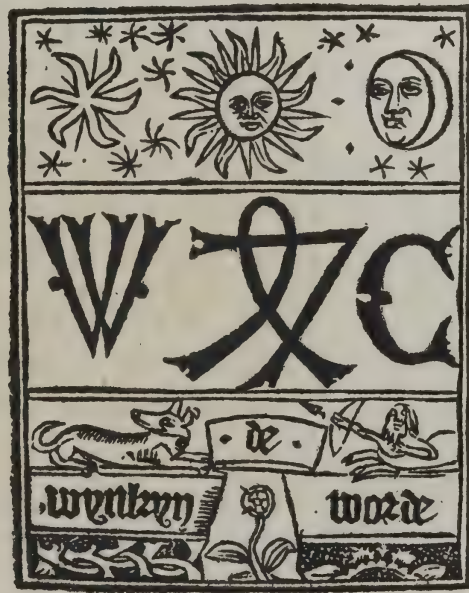 W C
· de ·
wynkyn worde